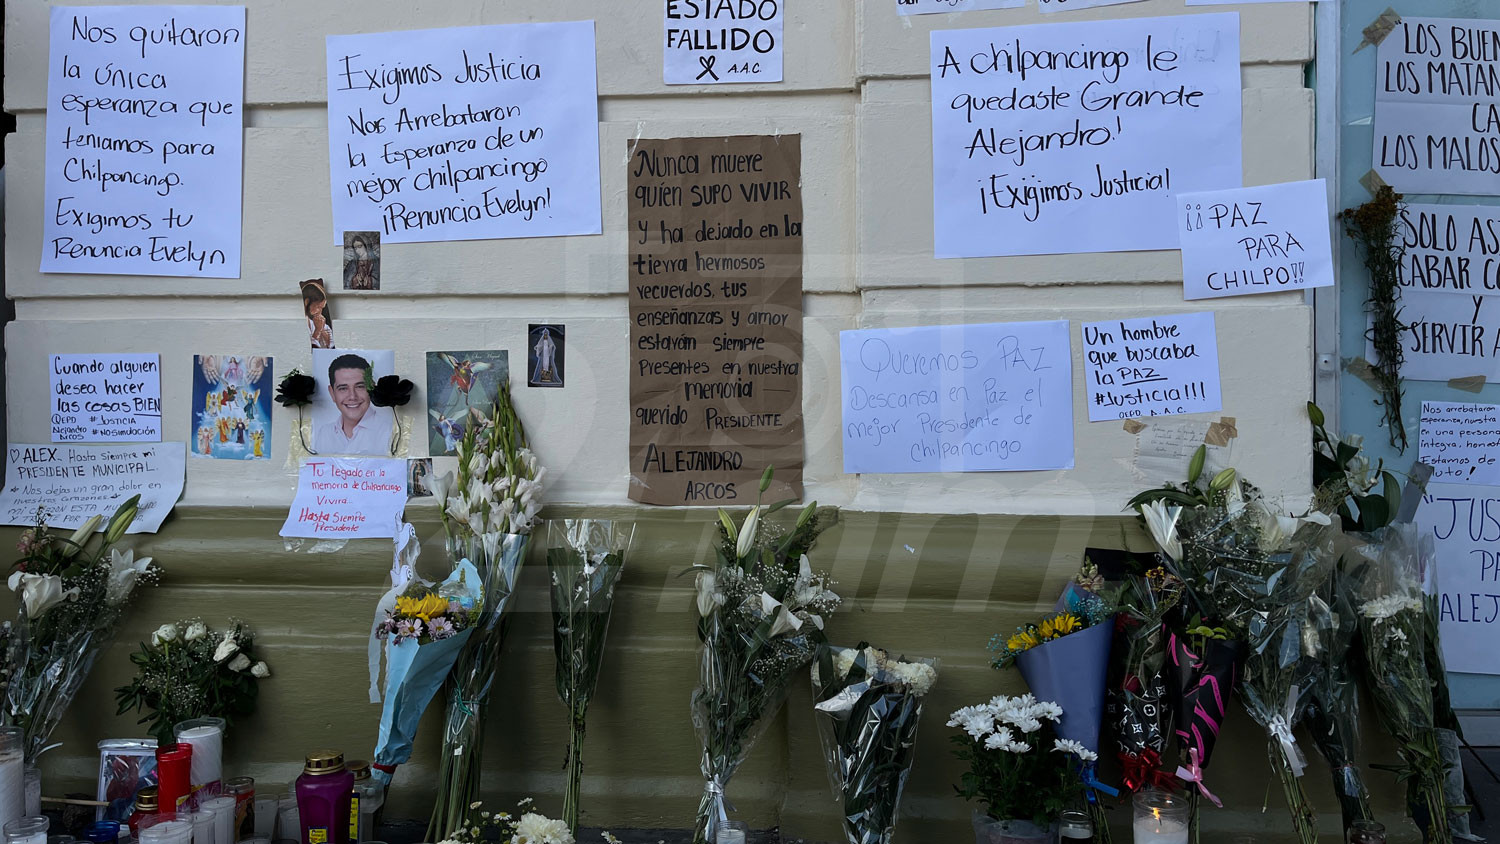 Nos quitaron
la única
esperanza que
teniamos para
Chilpancingo.
Exigimos tu
Renuncia Evelyn
Exigimos Justicia
Nos Arrebataron
la Esperanza de un
mejor chilpancingo
¡Renuncia Evelyn!
ESTADO
FALLIDO
A.A.C.
A chilpancingo le
quedaste Grande
Alejandro!
¡Exigimos Justicia!
¡¡PAZ
PARA
CHILPO!!
"LOS BUEN
LOS MATAN
CA
LOS MALOS
SOLO AS
CABAR CO
Y
SERVIR A
Nunca muere
quién SUPO VIVIR
Y ha dejado en la
tierra hermosos
recuerdos, tus
enseñanzas y amor
estarán siempre
Presentes en nuestra
memoria
querido PRESIDENTE
ALEJANDRO
ARCOS
Queremos PAZ
Descansa en Paz el
mejor Presidente de
chilpancingo
Un hombre
que buscaba
la PAZ
#Justicia!!!
QEPD. A.A.C.
Cuando alguien
desea hacer
las cosas BIEN
QEPD #JUSTICIA
Alejandro
Arcos #NoSimulación
♡ ALEX. Hasta siempre mi
PRESIDENTE MUNICIPAL.
Nos dejas un gran dolor en
nuestros corazones
Tu legado en la
memoria de Chilpancingo
Vivira...
Hasta Siempre
Presidente
Nos arrebataron
esperanza, nuestra
en una persona
íntegra, hones
Estamos de
luto!
"JUS
PA
ALEJ